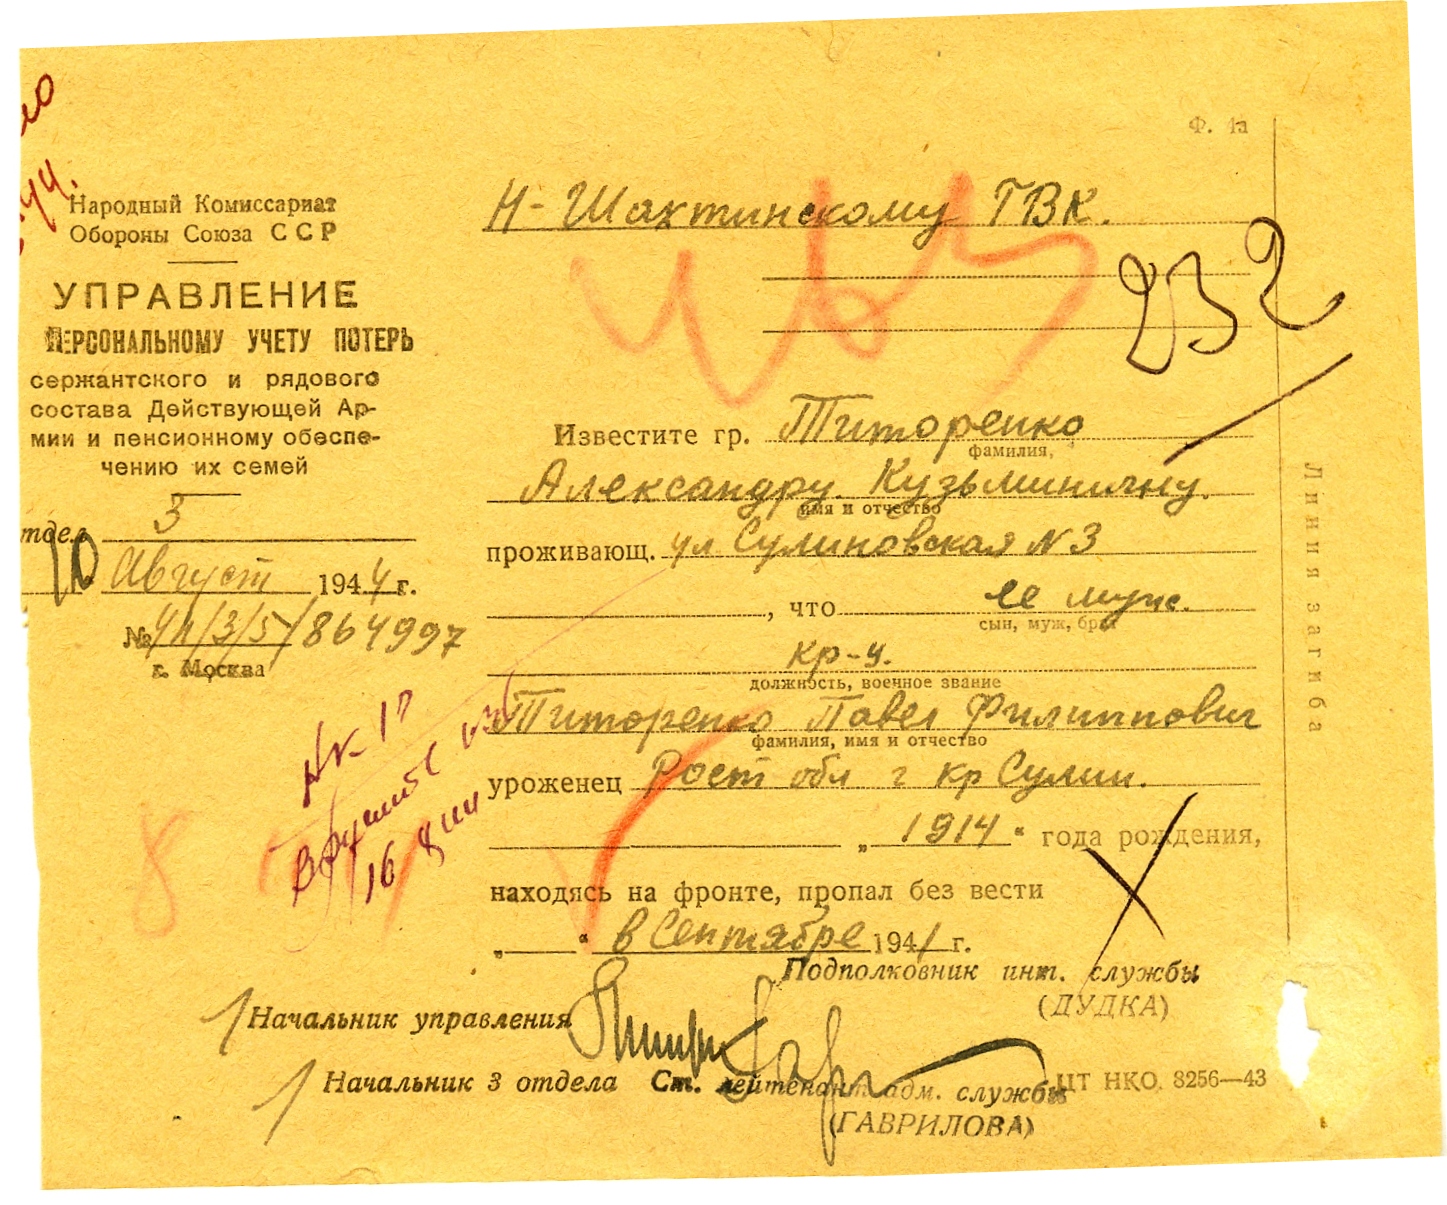 Ф. 4а
Народный Комиссариат
Обороны Союза ССР
УПРАВЛЕНИЕ
ПЕРСОНАЛЬНОМУ УЧЕТУ ПОТЕРЬ
сержантского и рядового
состава Действующей Ар-
мии и пенсионному обеспе-
чению их семей
тдел 3
10 Август 1944 г.
№ 864997
г. Москва
Н-Шахтинскому ГВК.
232
Известите гр. Титоренко
фамилия,
Александру Кузьминичну.
имя и отчество
проживающ. ул Сулиновская N 3
, что ее муж.
сын, муж, брат
кр-ц.
должность, военное звание
Титоренко Павел Филиппович
фамилия, имя и отчество
уроженец Рост обл г кр Сулин.
„ 1914 “ года рождения,
находясь на фронте, пропал без вести
„ “ в Сентябре 1941 г.
Подполковник инт. службы
(ДУДКА)
Начальник управления
Начальник 3 отдела Ст. лейтенант адм. службы
(ГАВРИЛОВА)
ЦТ НКО. 3256—43
Линия загиба